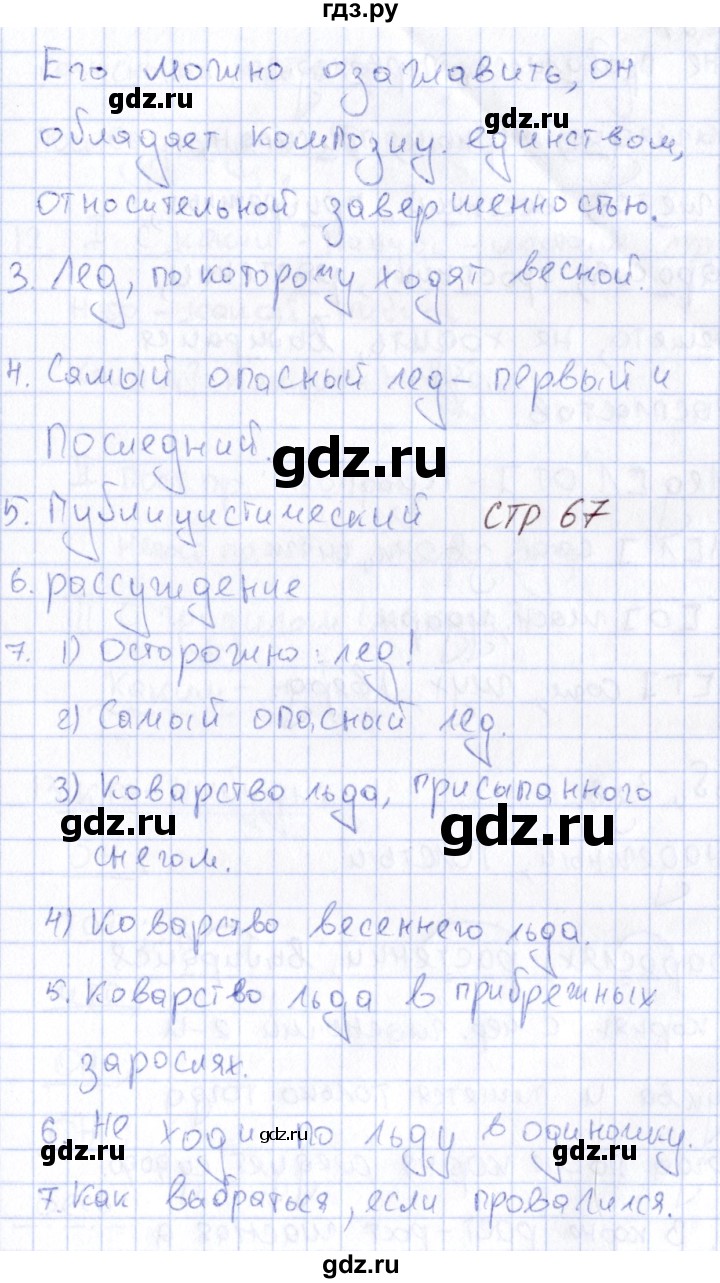 гдз.ру
Его можно озаглавить, он
gdz.ru
gdz.ru
обладает композиц. единством,
относительной завершенностью.
3. Лед, по которому ходят весной.
4. Самый опасный лед - первый и
последний.
gdz.ru
5. Публицистический стр 67
6. рассуждение
7. 1) Осторожно: лед!
2) Самый опасный лед.
3) Коварство льда, присыпанного
gdz.ru
gdz.ru
снегом.
4) Коварство весеннего льда.
5. Коварство льда в прибрежных
зарослях.
6. Не ходи по льду в одиночку.
gdz.ru
gdz.ru
gdz.ru
7. Как выбраться, если провалился.
gdz.ru